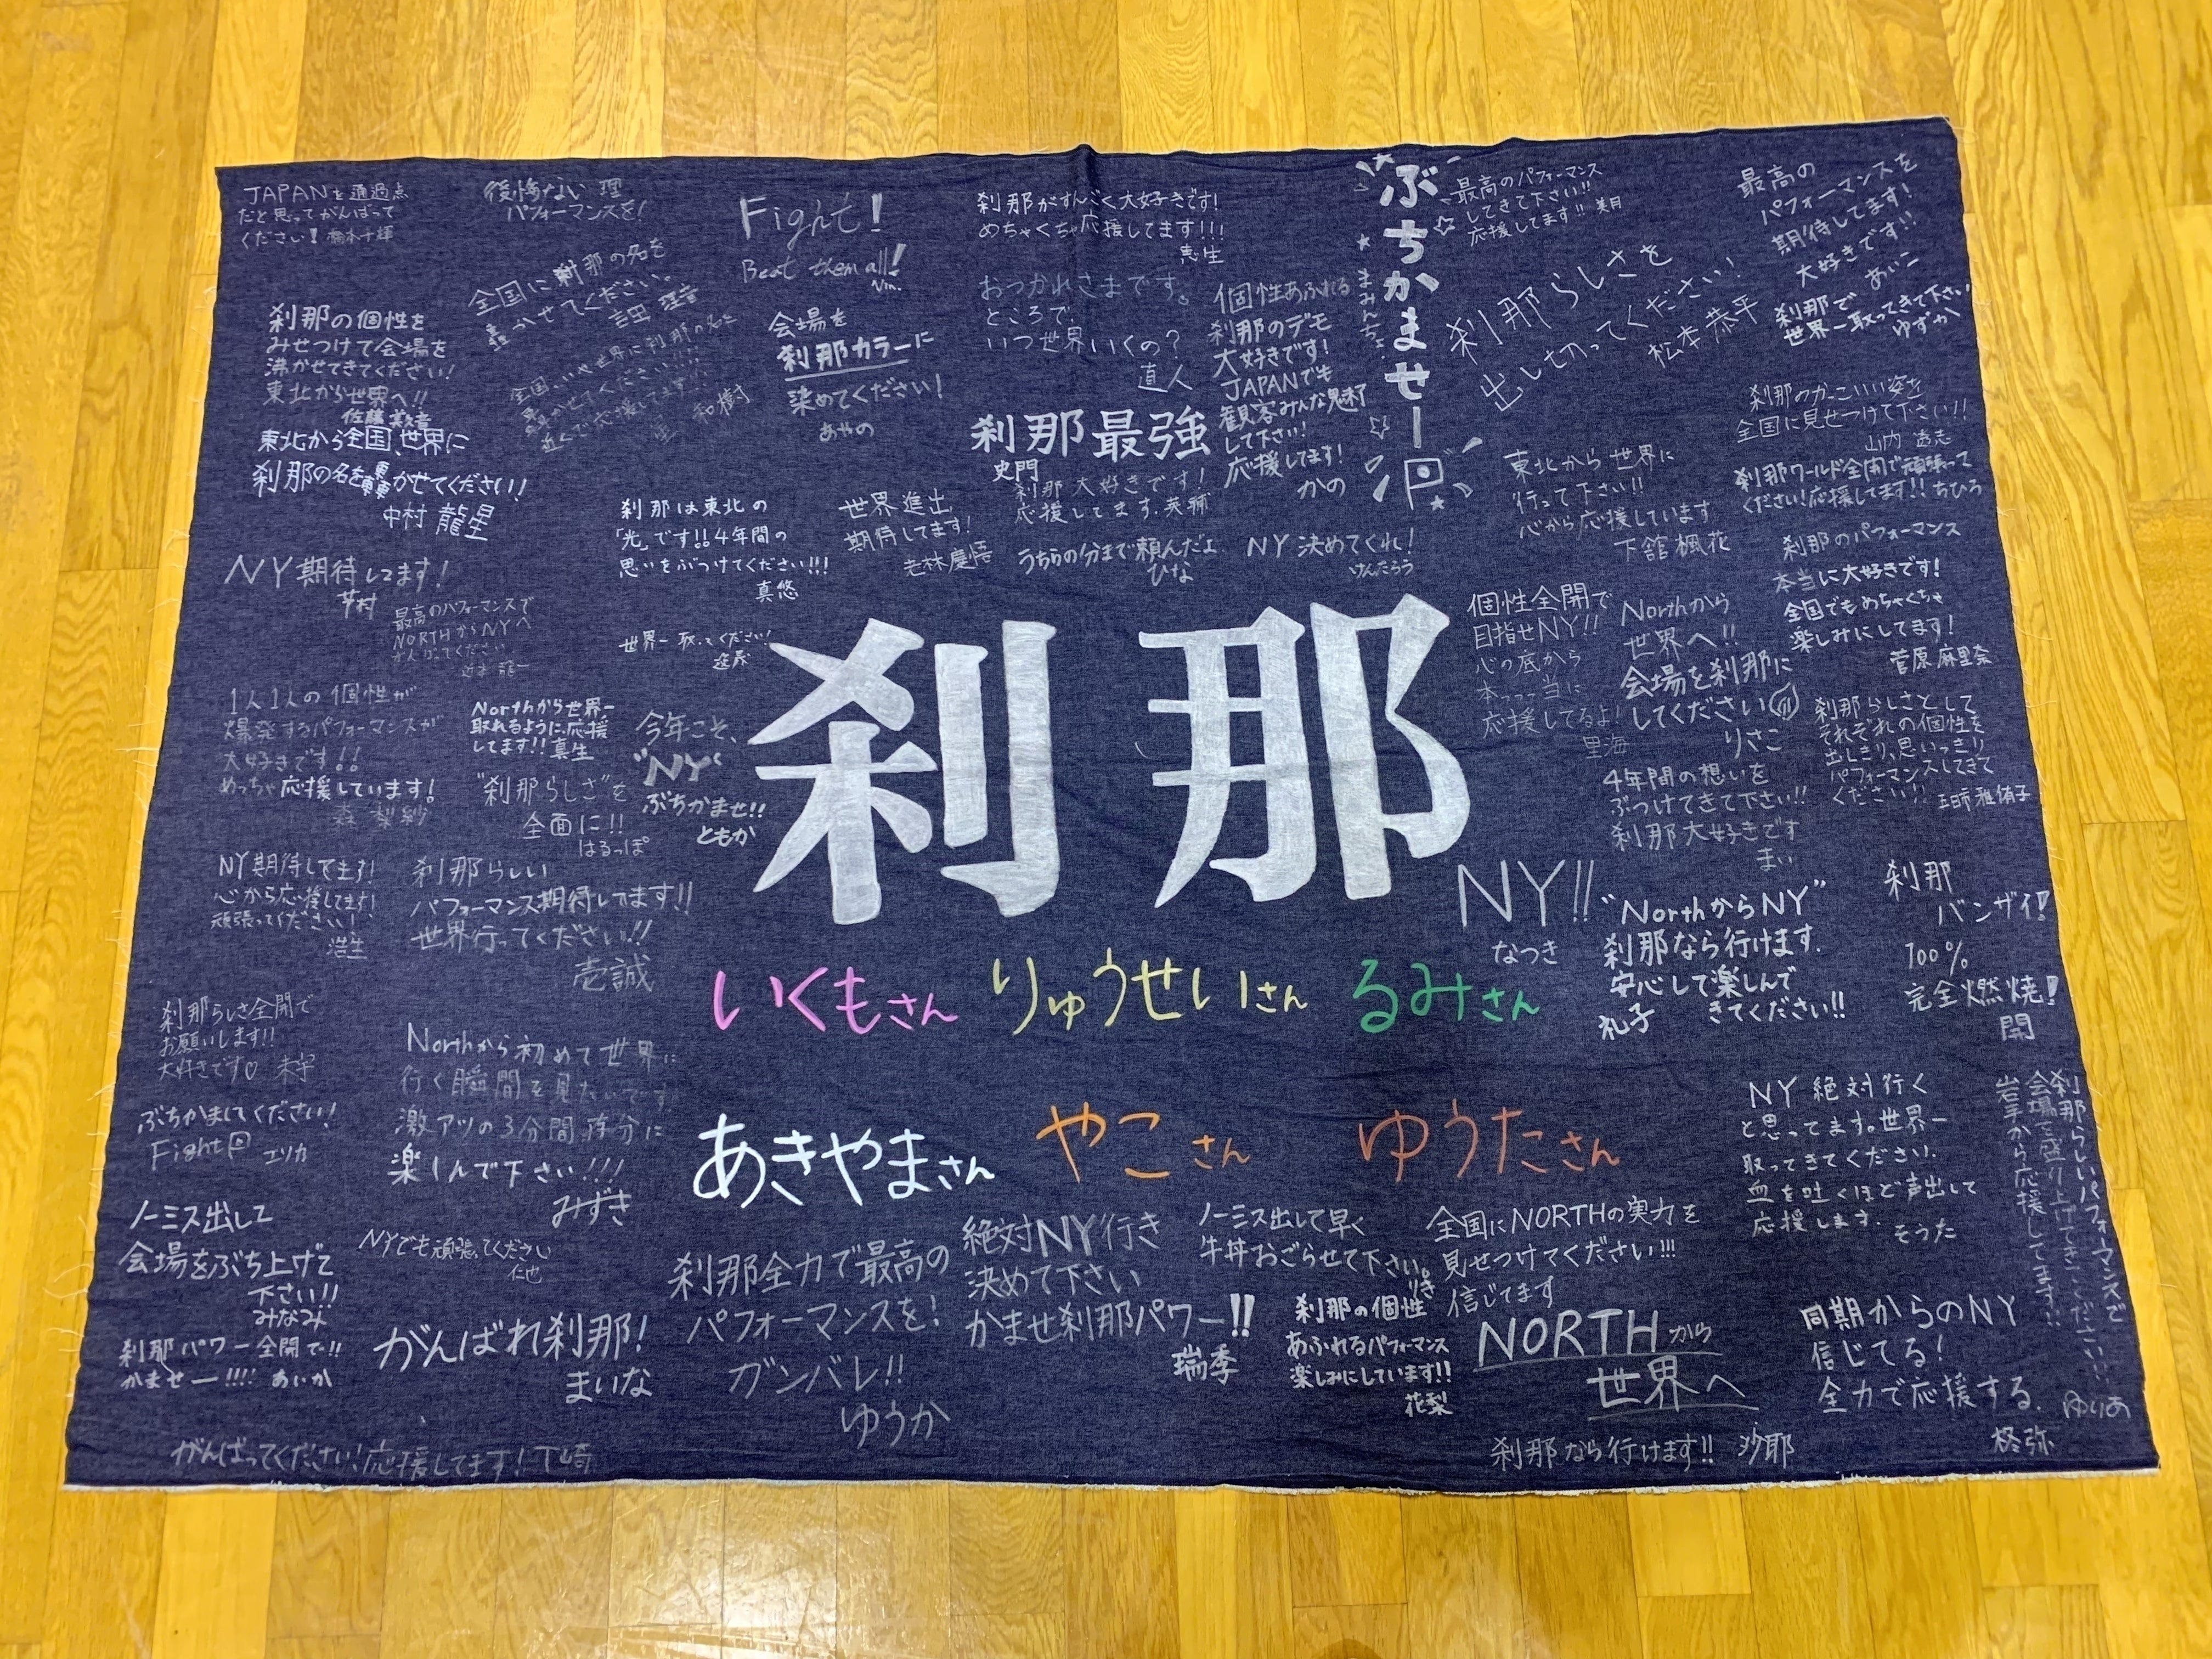 JAPANを通過点
だと思ってがんばって
ください! 橋本千輝
後悔ない 理
パフォーマンスを!
Fight!
Beat them all!
刹那がすんごく大好きです!
めちゃくちゃ応援してます!!!
恵生
ぶちかませー
まみんちょ
最高のパフォーマンス
してきて下さい!!
応援してます!! 美月
最高の
パフォーマンスを
期待してます!
大好きです!!
あいこ
全国に刹那の名を
轟かせてください。
吉田 理音
おつかれさまです。
ところで、
いつ世界いくの?
直人
個性あふれる
刹那のデモ
大好きです!
JAPANでも
観客みんな魅了
して下さい!
応援してます!
かの
刹那らしさを
出し切ってください!
松本恭平
刹那で
世界一取ってきて下さい
ゆずか
刹那の個性を
みせつけて会場を
沸かせてきてください!
東北から世界へ!!
佐藤
全国、いや世界に刹那の名を
轟かせてください!!!!
近くで応援してます!!
和樹
会場を
刹那カラーに
染めてください!
あやの
刹那最強
史門
刹那のかっこいい姿を
全国に見せつけて下さい!!
山内
東北から全国、世界に
刹那の名を轟かせてください!
中村 龍星
刹那 大好きです!
応援してます。英輔
東北から世界に
行って下さい!!
心から応援しています
下舘楓花
刹那ワールド全開で頑張って
ください!応援してます!! ちひろ
刹那は東北の
「光」です!!4年間の
思いをぶつけてください!!!
真悠
世界進出
期待してます!
老林慶悟
うちらの分まで頼んだよ
ひな
NY 決めてくれ!
けんたろう
刹那のパフォーマンス
本当に大好きです!
全国でもめちゃくちゃ
楽しみにしてます!
菅原麻里奈
NY期待してます!
芋村
最高のパフォーマンスで
NORTHからNYへ
世界一取ってください!
刹那
個性全開で
目指せNY!!
心の底から
本っっっ当に
応援してるよ!
里海
Northから
世界へ!!
会場を刹那に
してください
りさこ
1人1人の個性が
爆発するパフォーマンスが
大好きです!!
めっちゃ応援しています!
森 梨紗
Northから世界一
取れるように、応援
してます!! 真生
今年こそ、
"NY"
ぶちかませ!!
ともか
刹那らしさとして
それぞれの個性を
出しきり、思いっきり
パフォーマンスしてきて
ください!!
"刹那らしさ"を
全面に!!
はるっぽ
4年間の想いを
ぶつけてきて下さい!!
刹那大好きです
まい
NY期待してます!
心から応援してます!
頑張ってください!
浩生
刹那らしい
パフォーマンス期待してます!!
世界行ってください!!
壱誠
NY!!
なつき
"NorthからNY"
刹那なら行けます.
安心して楽しんで
きてください!!
礼子
刹那
バンザイ!
100%
完全燃焼!
開
いくもさん りゅうせいさん るみさん
刹那らしさ全開で
お願いします!!
大好きです♡ 未宇
Northから初めて世界に
行く瞬間を見たいです
激アツの3分間存分に
楽しんで下さい!!!
みずき
あきやまさん やこさん ゆうたさん
ぶちかましてください!
Fight
エリカ
NY絶対行く
と思ってます。世界一
取ってきてください.
血を吐くほど声出して
応援します.
そうた
刹那らしいパフォーマンスで
会場を盛り上げてきてください!!
岩手から応援してます!!
ゆりあ
ノーミス出して
会場をぶち上げて
下さい!!
みなみ
NYでも頑張ってください
仁也
刹那全力で最高の
パフォーマンスを!
ガンバレ!!
ゆうか
絶対NY行き
決めて下さい
かませ刹那パワー!!
瑞季
ノーミス出して早く
牛丼おごらせて下さい。
りき
全国にNORTHの実力を
見せつけてください!!!
信じてます
刹那パワー全開で!!
かませー!!!! あいか
がんばれ刹那!
まいな
刹那の個性
あふれるパフォーマンス
楽しみにしています!!
花梨
NORTHから
世界へ
同期からのNY
信じてる!
全力で応援する.
柊弥
がんばってください!応援してます!
刹那なら行けます!! 沙耶